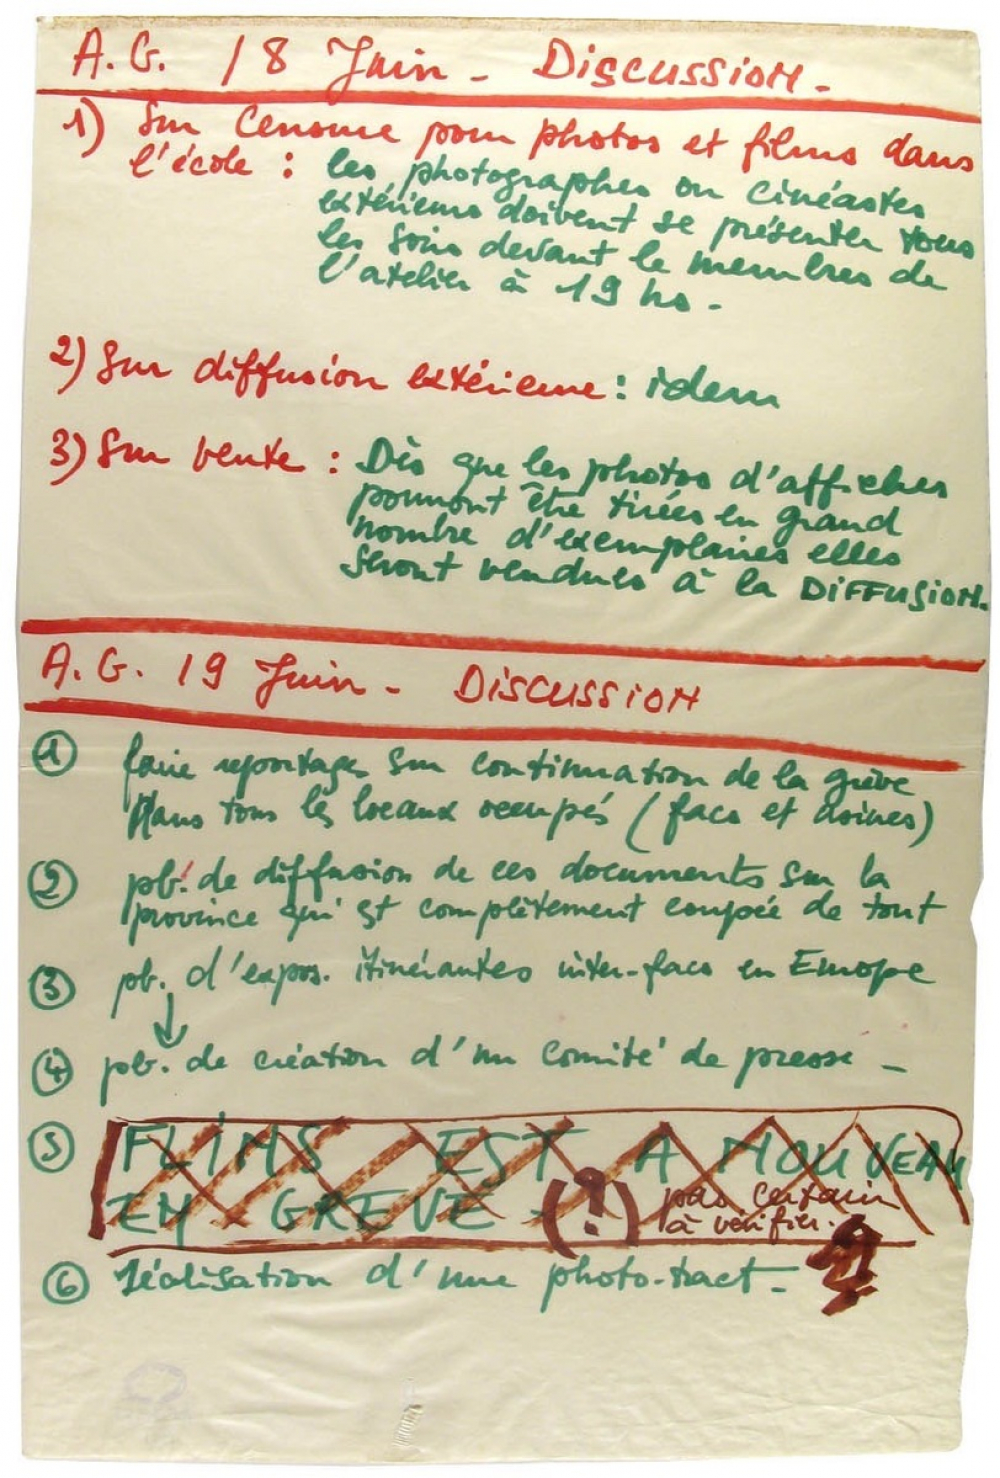 A.G. 18 Juin - DISCUSSION -
1) Sur Censure pour photos et films dans
l'école : les photographes ou cinéastes
extérieurs doivent se présenter tous
les soirs devant le membres de
l'atelier à 19 hs -
2) Sur diffusion extérieure : idem
3) Sur vente : Dès que les photos d'affiches
pourront être tirées en grand
nombre d'exemplaires elles
seront vendues à la DIFFUSION.
A.G. 19 Juin - DISCUSSION
① faire reportages sur continuation de la grève
dans tous les locaux occupés (facs et usines)
② pb. de diffusion de ces documents sur la
province qui est complètement coupée de tout
③ pb. d'expos. itinérantes inter-facs en Europe
④ pb. de création d'un comité de presse -
⑤ FLINS EST A NOUVEAU
EN GREVE - (?) pas certain
à vérifier.
⑥ réalisation d'une photo-tract -